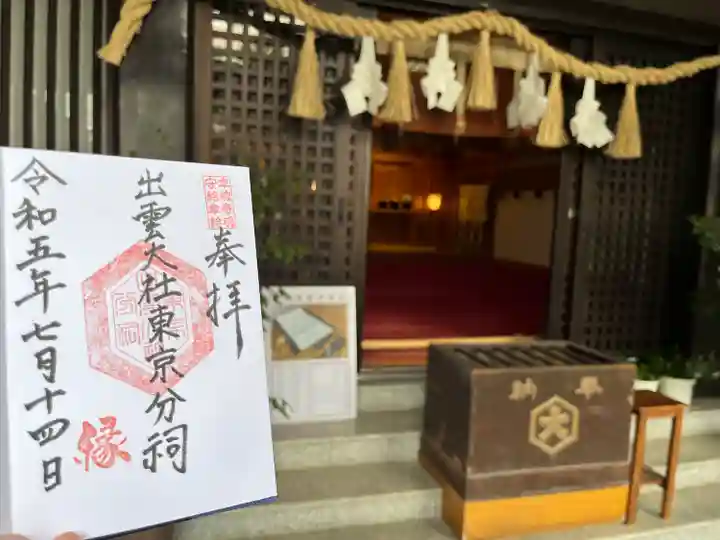 奉拝
出雲大社東京分祠
縁
令和五年七月十四日
大